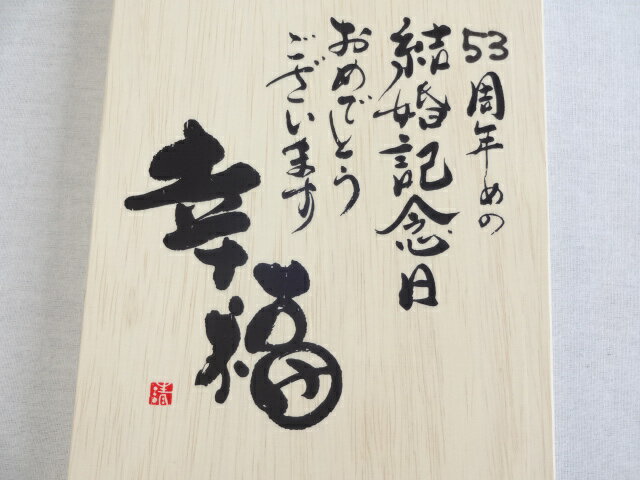 53周年めの
結婚記念日
おめでとう
ございます
幸福
清